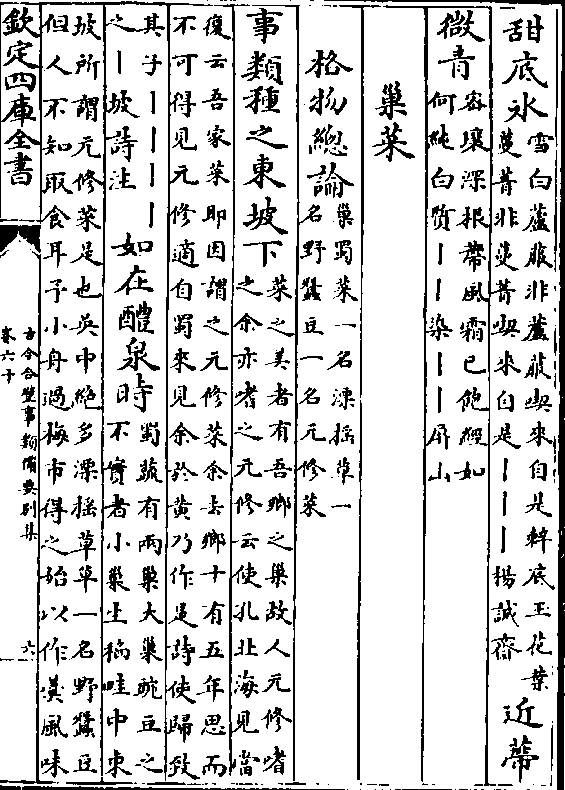 甜底氷雪白蘆菔非蘆菔喫來自是辣底玉花葉
蔓菁非蔓菁喫来自是丨丨丨楊誠齋近蔕
微青密壤深根蔕風霜已飽經如
何純白質丨丨染丨丨屏山
巢菜
格物總論巢蜀菜一名漂摇草一
名野蠶豆一名元修菜
事類種之東坡下菜之美者有吾鄉之巢故人元修嗜
之余亦嗜之元修云使孔北海見當
復云吾家菜耶因謂之元修菜余去鄉十有五年思而
不可得見元修適自蜀來見余於黄乃作是詩使歸致
其子丨丨丨丨丨如在醴泉時蜀蔬有兩巢大巢豌豆之
之丨坡詩注不實者小巢生稻畦中東
坡所謂元修菜是也吳中絶多漂摇草草一名野蠶豆
但人不知取食耳予小舟過梅市得之始以作羮風味
欽定四庫全書
古今合璧事類備要别集
卷六十
六